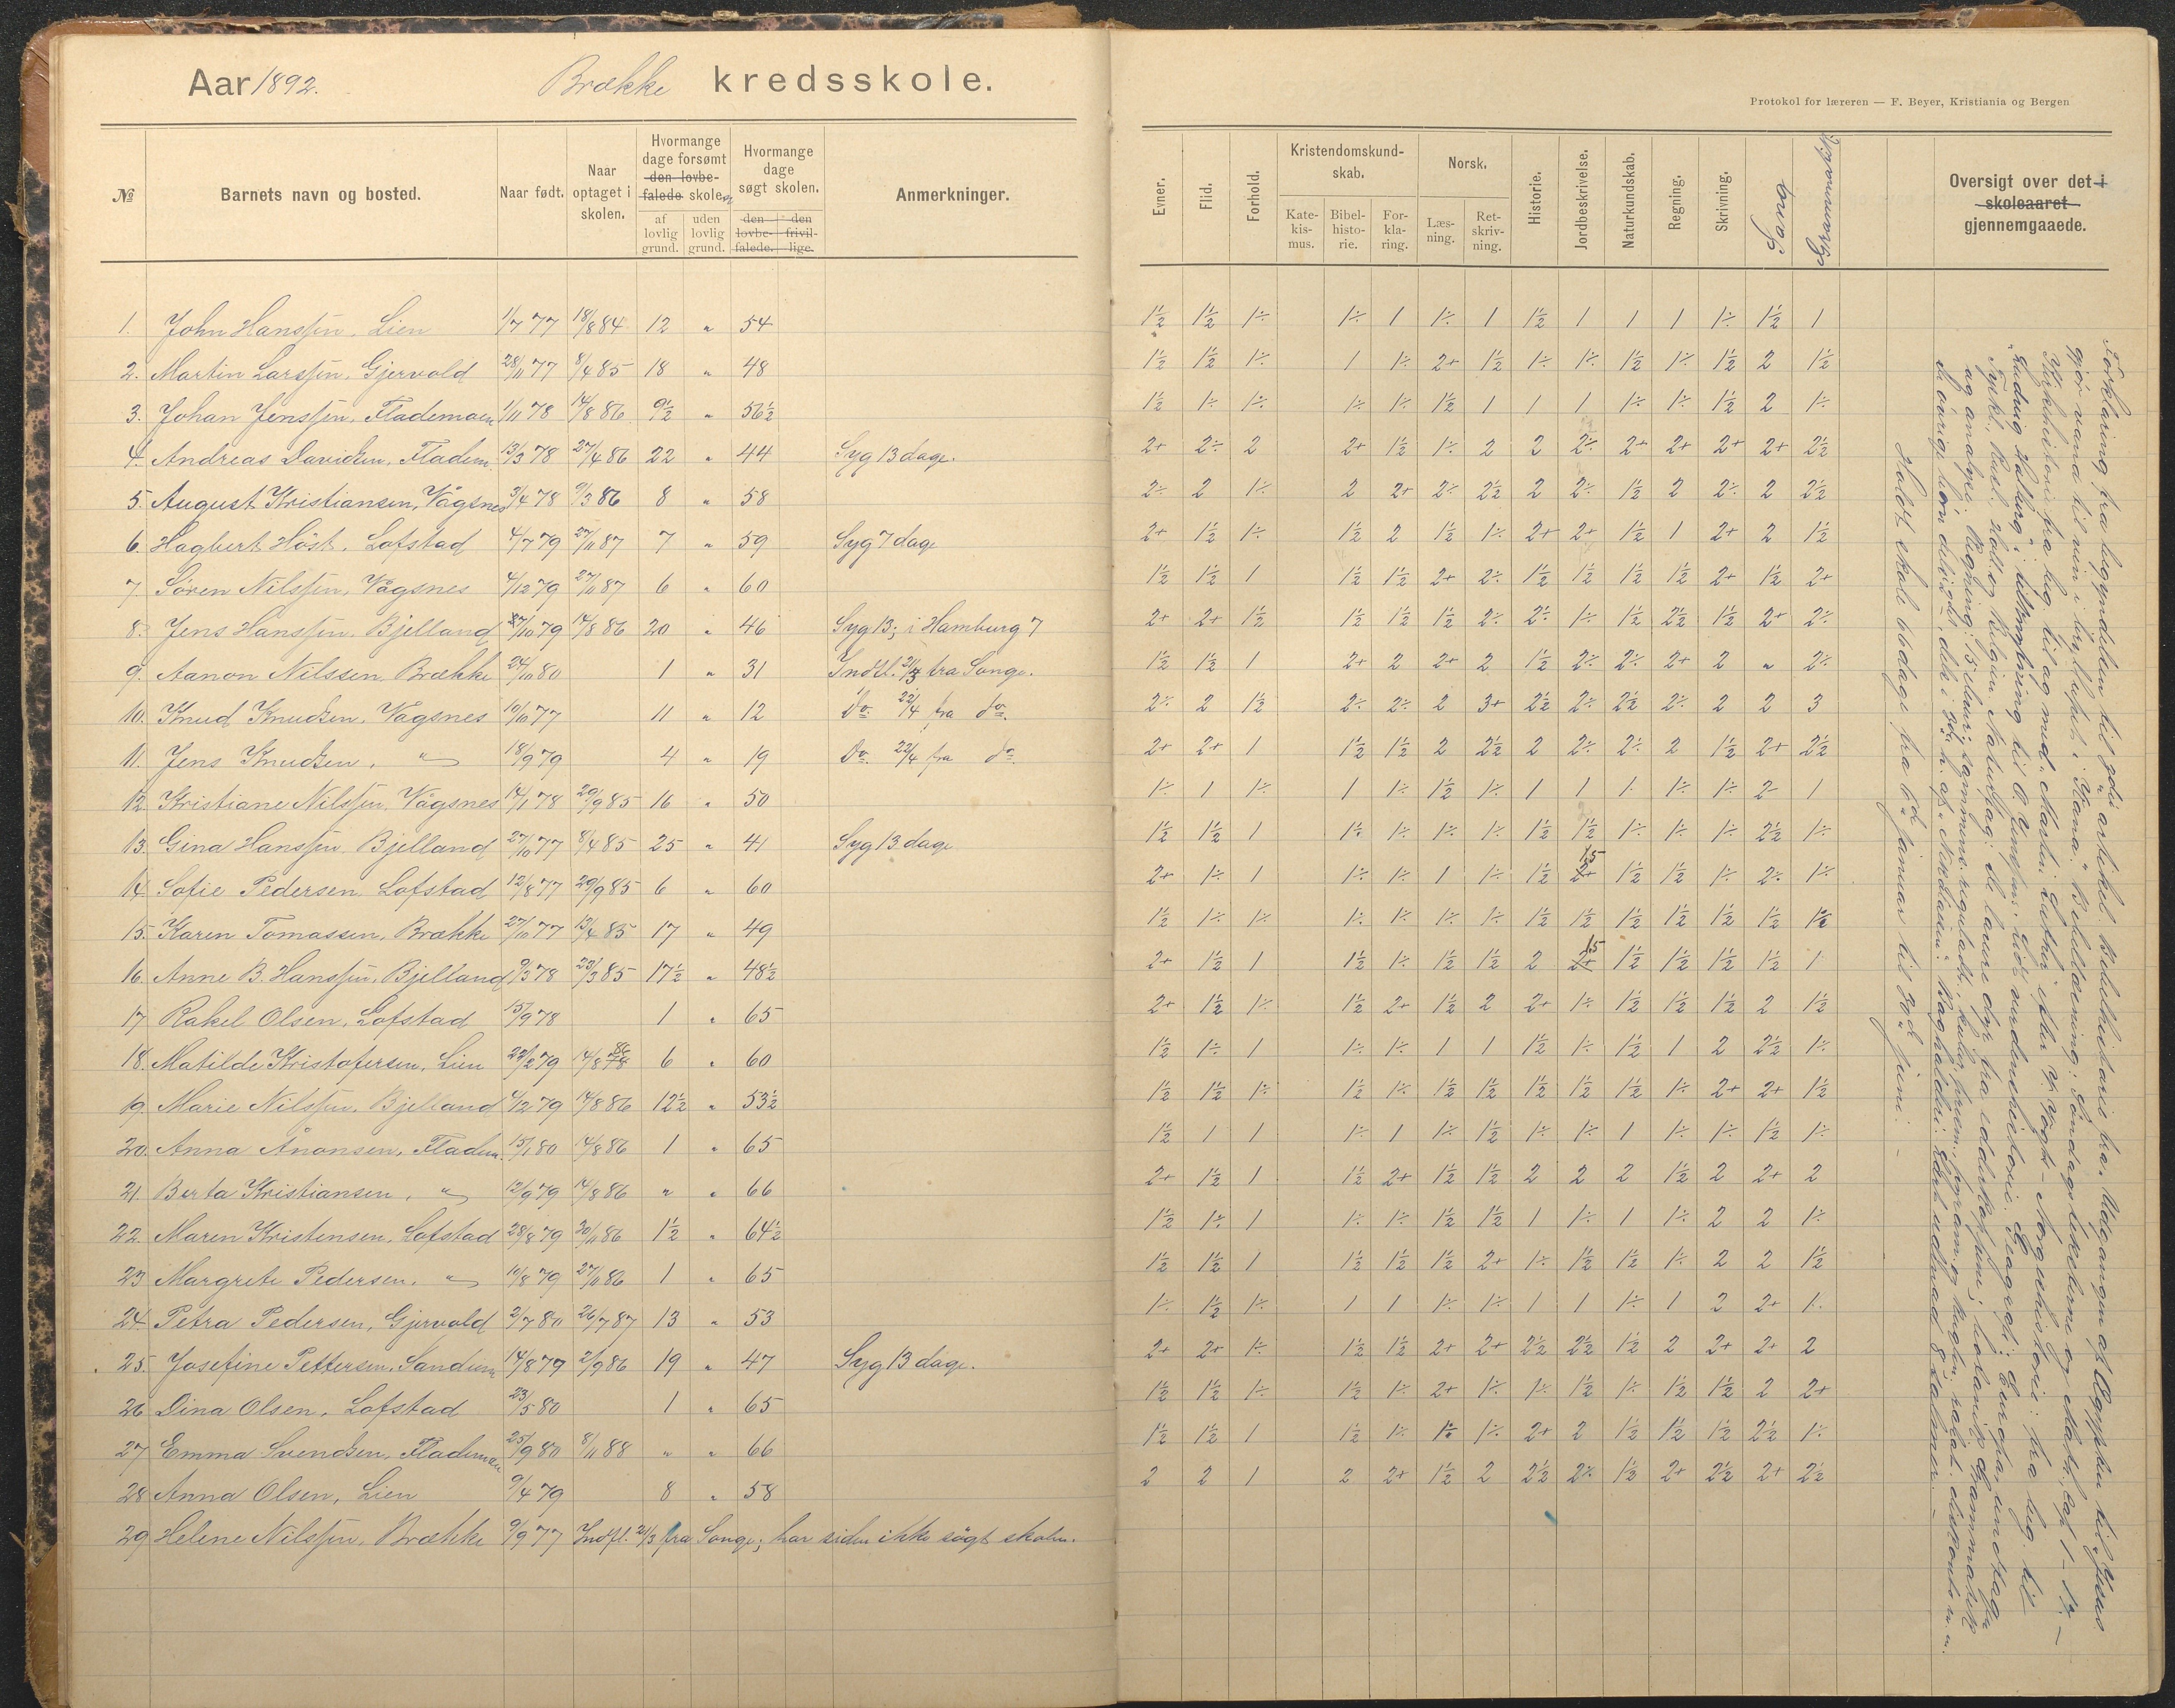 Aar 1892. Brække kredsskole.
№ Barnets navn og bosted. Naar født. Naar optaget i skolen. Hvormange dage forsømt den lovbefalede skole. af lovlig grund. uden lovlig grund. Hvormange dage søgt skolen. den lovbe-falede. den frivil-lige. Anmerkninger.
1. John Hanssen, Lien 1/7 77 18/8 84 12 " 54
2. Martin Larssen, Gjervold 28/11 77 8/4 85 18 " 48
3. Johan Jenssen, Flademoen 1/11 78 14/8 86 9½ " 56½
4. Andreas Davidsen, Fladem. 13/3 78 27/4 86 22 " 44 Syg 13 dage.
5. August Kristiansen, Vågsnes 3/4 78 9/3 86 8 " 58
6. Hagbert Höst, Lofstad 4/7 79 27/11 87 7 " 59 Syg 7 dage
7 Sören Nilssen, Vågsnes 4/12 79 27/11 87 6 " 60
8. Jens Hanssen, Bjelland 27/10 79 14/8 86 20 " 46 Syg 13; i Hamburg 7
9. Aanon Nilssen, Brække 24/10 80 1 " 31 Indfl. 21/3 fra Songe.
10. Knud Knudsen, Vagsnes 10/10 77 11 " 12 Do. 22/4 fra do.
11. Jens Knudsen, " 18/9 79 4 " 19 Do. 22/4 fra do.
12. Kristiane Nilssen, Vågsnes 14/1 78 29/9 85 16 " 50
13. Gina Hanssen, Bjelland 27/10 77 8/4 85 25 " 41 Syg 13 dage
14. Sofie Pedersen, Lofstad 12/8 77 29/9 85 6 " 60
15. Karen Tomassen, Brække 27/10 77 13/4 85 17 " 49
16. Anne B. Hanssen, Bjelland 9/3 78 23/3 85 17½ " 48½
17 Rakel Olsen, Lofstad 15/9 78 1 " 65
18. Matilde Kristofersen, Lien 22/2 79 14/8 86 6 " 60
19. Marie Nilssen, Bjelland 4/12 79 14/8 86 12½ " 53½
20. Anna Ånonsen, Fladem. 15/1 80 14/8 86 1 " 65
21. Berta Kristiansen, " 12/9 79 14/8 86 " " 66
22. Maren Kristensen, Lofstad 28/8 79 30/11 86 1½ " 64½
23 Margrete Pedersen, " 10/8 79 27/11 86 1 " 65
24. Petra Pedersen, Gjervold 2/7 80 26/7 87 13 " 53
25. Josefine Pettersen, Sandum 14/8 79 2/9 86 19 " 47 Syg 13 dage.
26 Dina Olsen, Lofstad 23/5 80 1 " 65
27 Emma Svendsen, Flademoen 25/9 80 8/11 88 " " 66
28 Anna Olsen, Lien 9/4 79 8 " 58
29 Helene Nilssen, Brække 9/9 77 Indfl. 21/3 fra Songe; har siden ikke sögt skolen.
Protokol for læreren — F. Beyer, Kristiania og Bergen
Evner. Flid. Forhold. Kristendomskund-skab. Kate-kis-mus. Bibel-histo-rie. For-kla-ring. Norsk. Læs-ning. Ret-skriv-ning. Historie. Jordbeskrivelse. Naturkundskab. Regning. Skrivning. Sang
Oversigt over det i skoleaaret gjennemgaaede.
1½ 1½ 1÷ 1÷ 1 1÷ 1 1½ 1 1 1 1÷ 1½ 1
1½ 1½ 1÷ 1 1÷ 2+ 1½ 1÷ 1÷ 1½ 1÷ 1½ 2 1½
1½ 1÷ 1÷ 1÷ 1÷ 1½ 1 1 1 1÷ 1÷ 1½ 2 1÷
2+ 2÷ 2 2+ 1½ 1÷ 2 2 2÷ 2+ 2+ 2+ 2+ 2½
2÷ 2 1÷ 2 2+ 2÷ 2½ 2 2÷ 1½ 2 2÷ 2 2½
2+ 1½ 1÷ 1½ 2 1½ 1÷ 2+ 2+ 1½ 1 2+ 2 1½
1½ 1½ 1 1½ 1½ 2+ 2÷ 1½ 1½ 1½ 1½ 2+ 1½ 2+
2+ 2+ 1½ 1½ 1½ 1½ 2÷ 2÷ 1÷ 1½ 2½ 1½ 2+ 2÷
1½ 1½ 1 2+ 2 2+ 2 1½ 2÷ 2÷ 2+ 2 " 2÷
2÷ 2 1½ 2÷ 2÷ 2 3+ 2½ 2÷ 2½ 2÷ 2 2 3
2+ 2+ 1 1½ 1½ 2 2½ 2 2÷ 2÷ 2 1½ 2+ 2½
1÷ 1 1÷ 1 1÷ 1½ 1÷ 1 1 1 1÷ 1÷ 2 1
1½ 1½ 1 1÷ 1÷ 1÷ 1÷ 1½ 1½ 1÷ 1÷ 1÷ 2½ 1÷
2+ 1÷ 1 1÷ 1÷ 1 1÷ 1½ 1,5 1½ 1½ 1÷ 2÷ 1÷
1½ 1÷ 1÷ 1÷ 1÷ 1÷ 1÷ 1½ 1½ 1½ 1½ 1½ 1½ 1÷
2+ 1½ 1 1½ 1÷ 1½ 1½ 2 1,5 1½ 1½ 1½ 1½ 1
2+ 1½ 1÷ 1½ 2+ 1½ 2 2+ 1÷ 1½ 1½ 1½ 2 1½
1½ 1÷ 1 1÷ 1÷ 1 1 1½ 1÷ 1½ 1 2 2½ 1÷
1½ 1½ 1÷ 1½ 1÷ 1½ 1½ 1½ 1½ 1½ 1÷ 2+ 2+ 1½
1½ 1 1 1÷ 1 1÷ 1½ 1÷ 1÷ 1 1÷ 1÷ 1½ 1÷
2+ 1½ 1 1½ 2+ 1½ 1½ 2 2 2 1½ 2 2+ 2
1½ 1÷ 1 1÷ 1÷ 1½ 1½ 1 1÷ 1 1÷ 2 2 1÷
1½ 1½ 1 1½ 1½ 1½ 2+ 1÷ 1½ 1½ 1÷ 2 2 1½
1÷ 1½ 1÷ 1 1 1÷ 1÷ 1 1 1÷ 1 2 2+ 1÷
2+ 2+ 1÷ 1½ 1½ 2+ 2+ 2½ 2½ 1½ 2 2+ 2+ 2
1½ 1½ 1÷ 1½ 1÷ 2+ 1÷ 1÷ 1½ 1÷ 1½ 1½ 2 2+
1½ 1½ 1 1½ 1÷ 1÷ 1÷ 2+ 2 1½ 1½ 1½ 2½ 1÷
2 2 1 2 2+ 1½ 2 2½ 2÷ 1½ 2+ 2½ 2+ 2½
Forklaring fra begyndelsen til 3die artikel. Bibelhistorie fra Udgangen af Ægypten til "Jesus
gjör vand til vin i bryllupet i Kana."
Kirkehistorie fra til og med Martin Luther efter V. Vogt - Norgeshistorie: fra
Ludvig Holberg
Tyrk., Rusl., Holl. og Belgien. Naturfag: de lavere dyr
og analyse. Regning:
Holdt skole 66 dage fra 6te januar til juni.